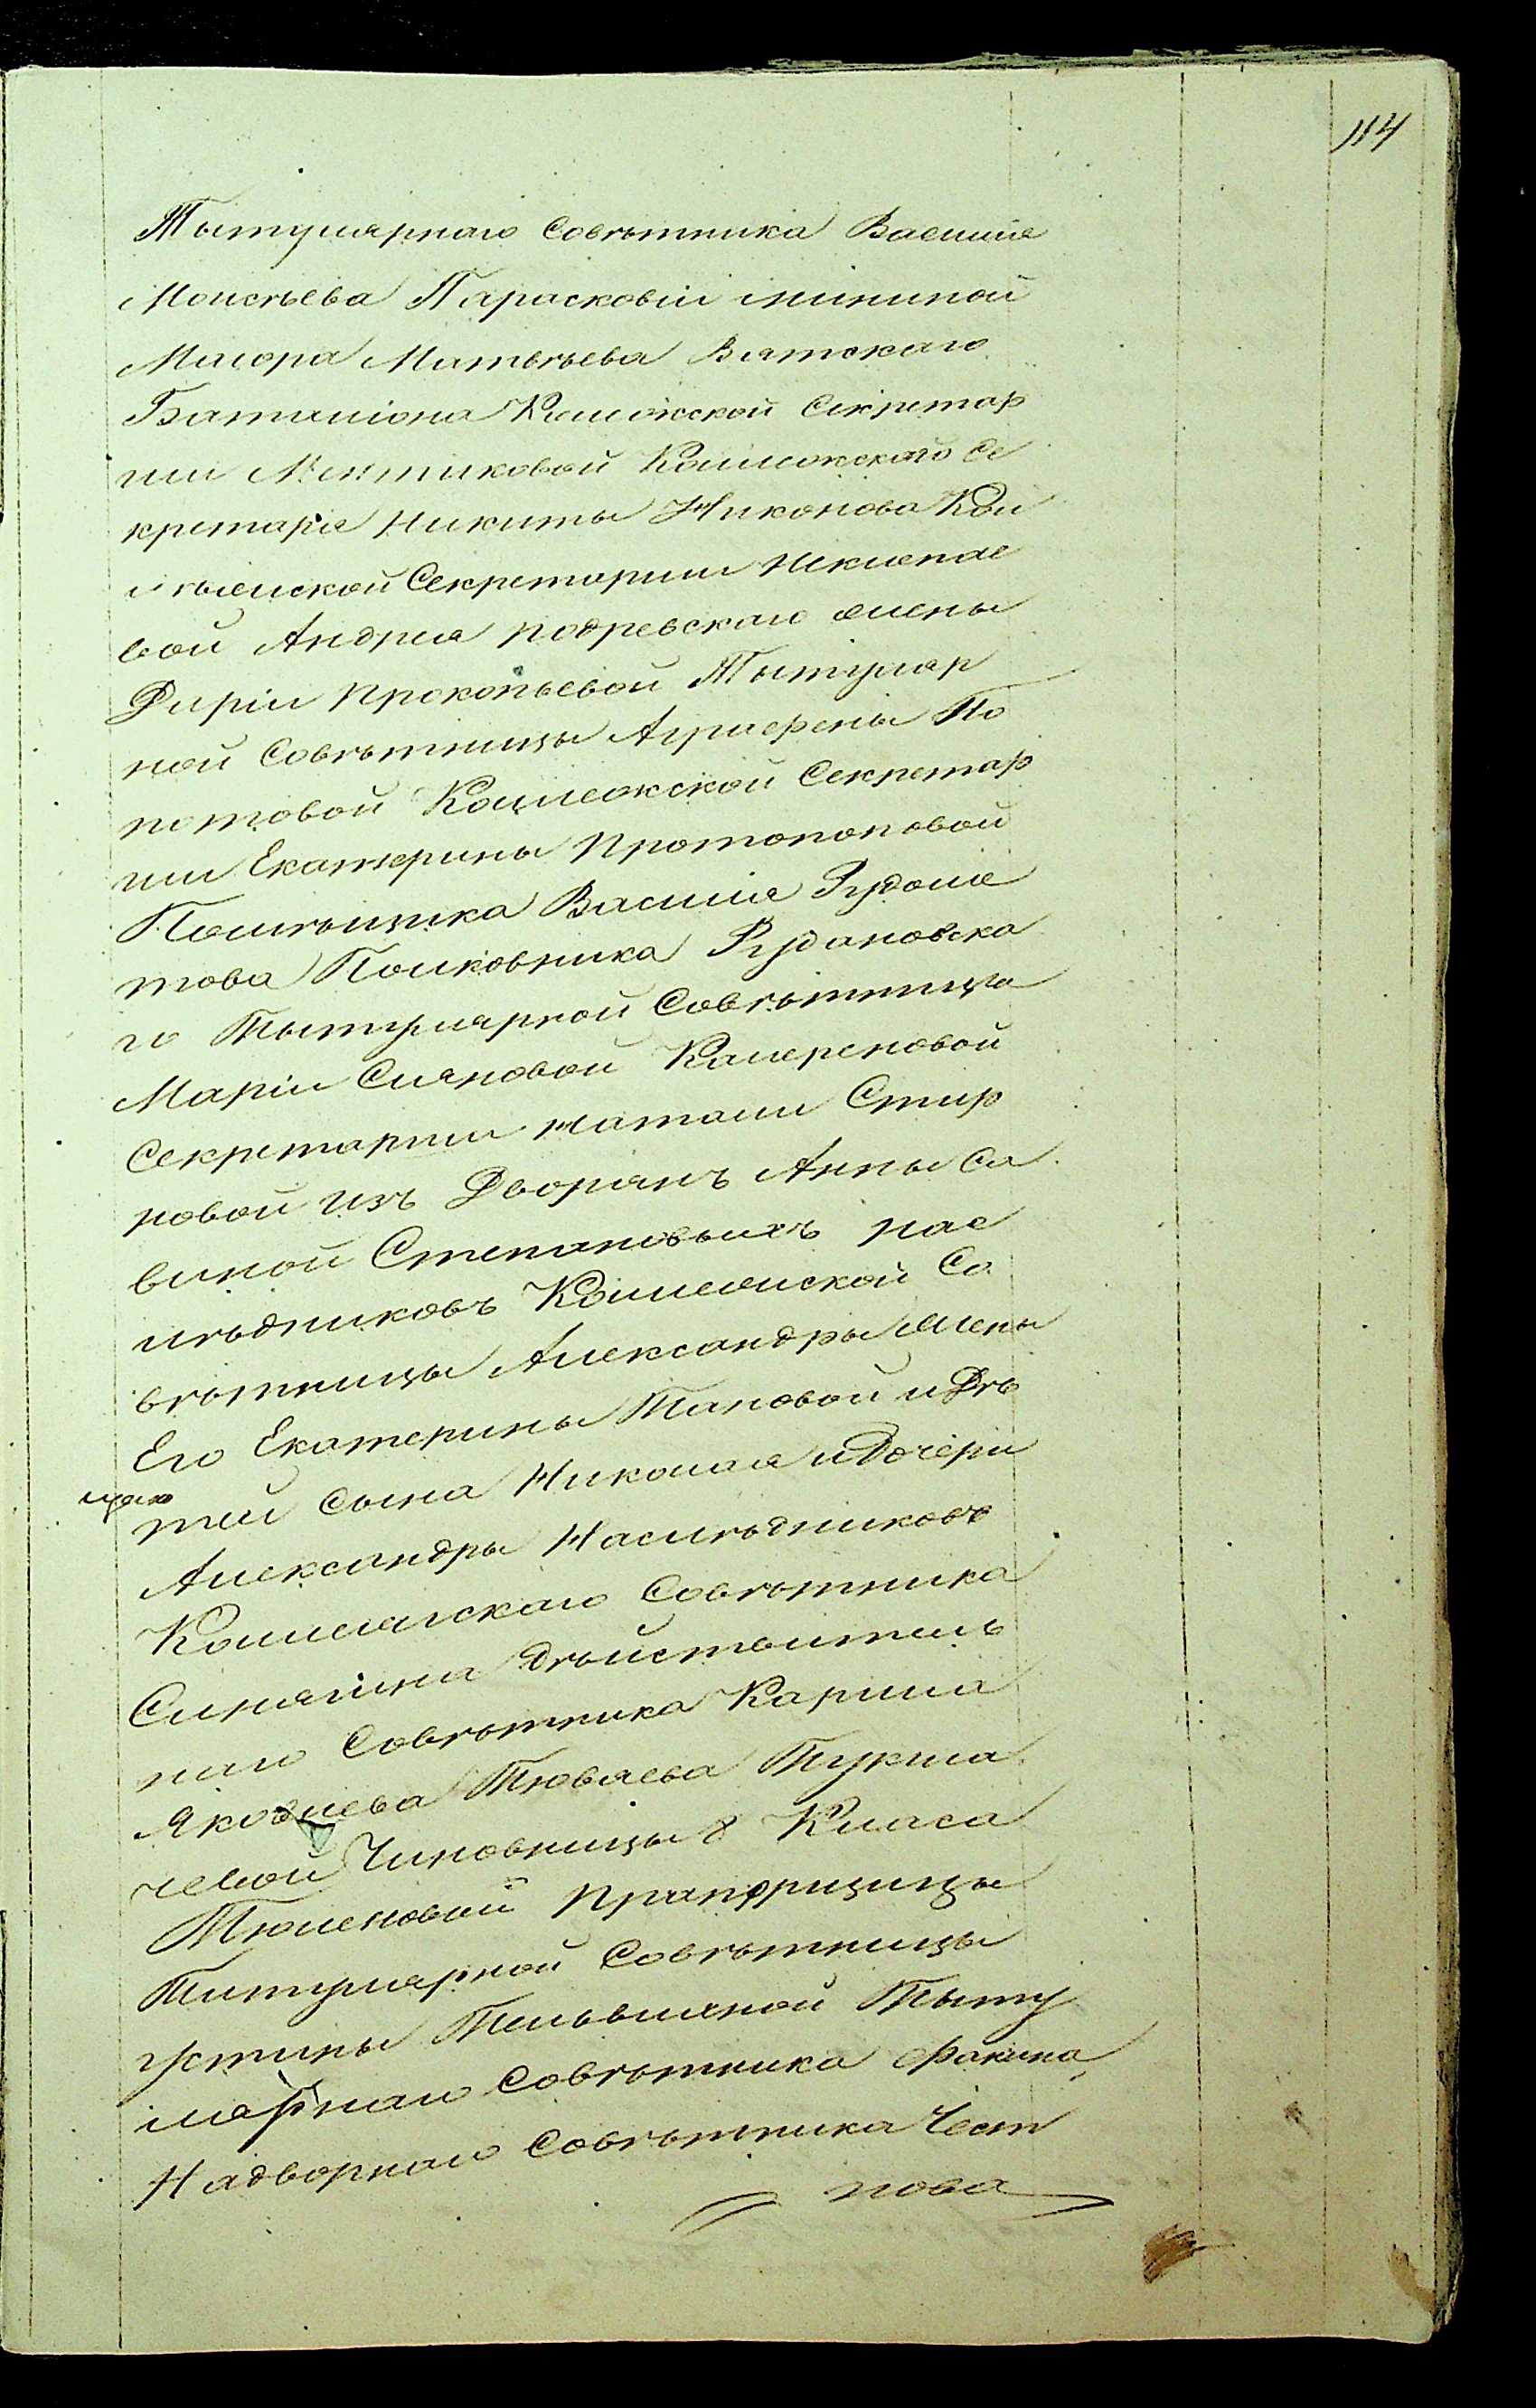 114
Тытулярнаго Советника Василія
Моисѣева Парасковіи ининой
Маіора Матвѣева Вятскаго
Баталіона Колежской Секретар
ши Ментиковой Коллежскаго Се
кретаря Никиты Никонова Кол
лѣжской Секретарши Неклепае
вой Андрея подревскаго жены
Дарiи Прокопьевой Тытуляр
ной Совѣтницы Агриефены По
потовой Коллежской Секретар
ши Екатерины Протопоповой
Помѣщика Василія Рудоме
това Полковника Рудановска
го Тытулярной Совѣтница
Маріи Сляновой Камереновой
Секретарши Натальи Смир
новой изъ Дворянъ Анны Са
виной Степановыхъ нас
лѣдниковъ Коллежской Со
вѣтницы Александры жены
Его Екатерины Тановой и Дѣ
тей Сына Николая и Дочери
Александры Наслѣдниковъ
Коллежскаго Совѣтника
Синягина Дѣйствитель
наго Совѣтника Карпила
Яковлева Тюваева Тукма
чевой Чиновницы 8 Класа
Тюленовой Прапорщицы
Титулярной Совѣтницы
устины Тельвиной Тыту
лярнаго Совѣтника Факина,
Надворнаго Совѣтника Чест
нова